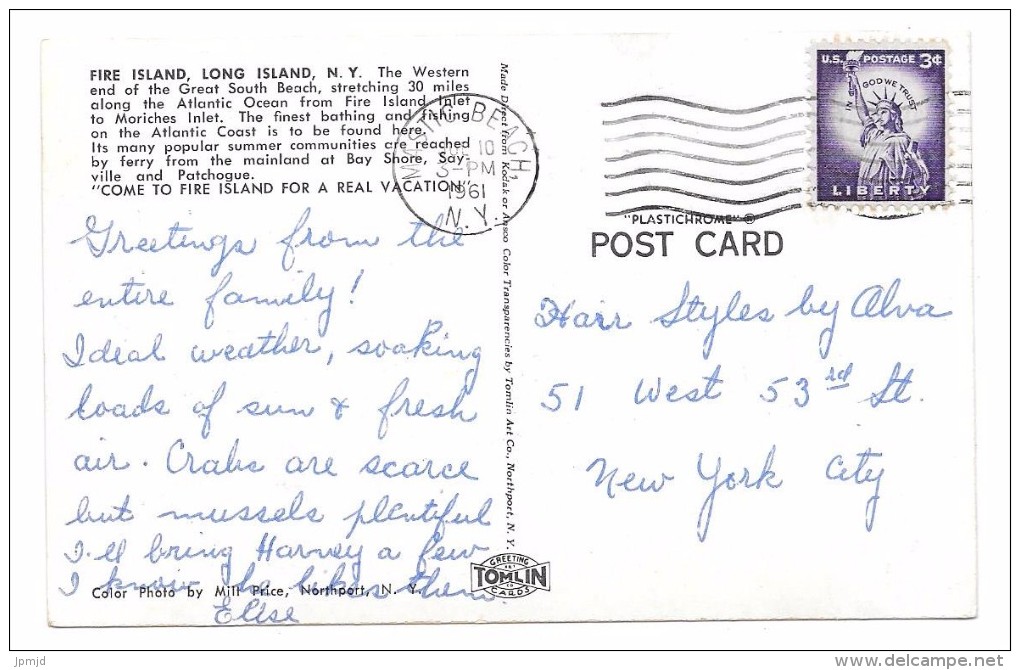 FIRE ISLAND, LONG ISLAND, N. Y. The Western
end of the Great South Beach, stretching 30 miles
along the Atlantic Ocean from Fire Island Inlet
to Moriches Inlet. The finest bathing and fishing
on the Atlantic Coast is to be found here.
Its many popular summer communities are reached
by ferry from the mainland at Bay Shore, Say-
ville and Patchogue.
"COME TO FIRE ISLAND FOR A REAL VACATION"
Greetings from the
entire family!
Ideal weather, soaking
loads of sun & fresh
air. Crabs are scarce
but mussels plentiful
I'll bring Harvey a few
I know he likes them.
Elise
Color Photo by Milt Price, Northport, N. Y.
Made Direct from Kodak or Ansco Color Transparencies by Tomlin Art Co., Northport, N. Y.
GREETING
TOMLIN
CARDS
MASTIC BEACH
10
3-PM
1961
N.Y.
U.S. POSTAGE 3¢
IN GOD WE TRUST
LIBERTY
"PLASTICHROME" ®
POST CARD
Hair Styles by Alva
51 West 53rd St.
New York City
jpmjd